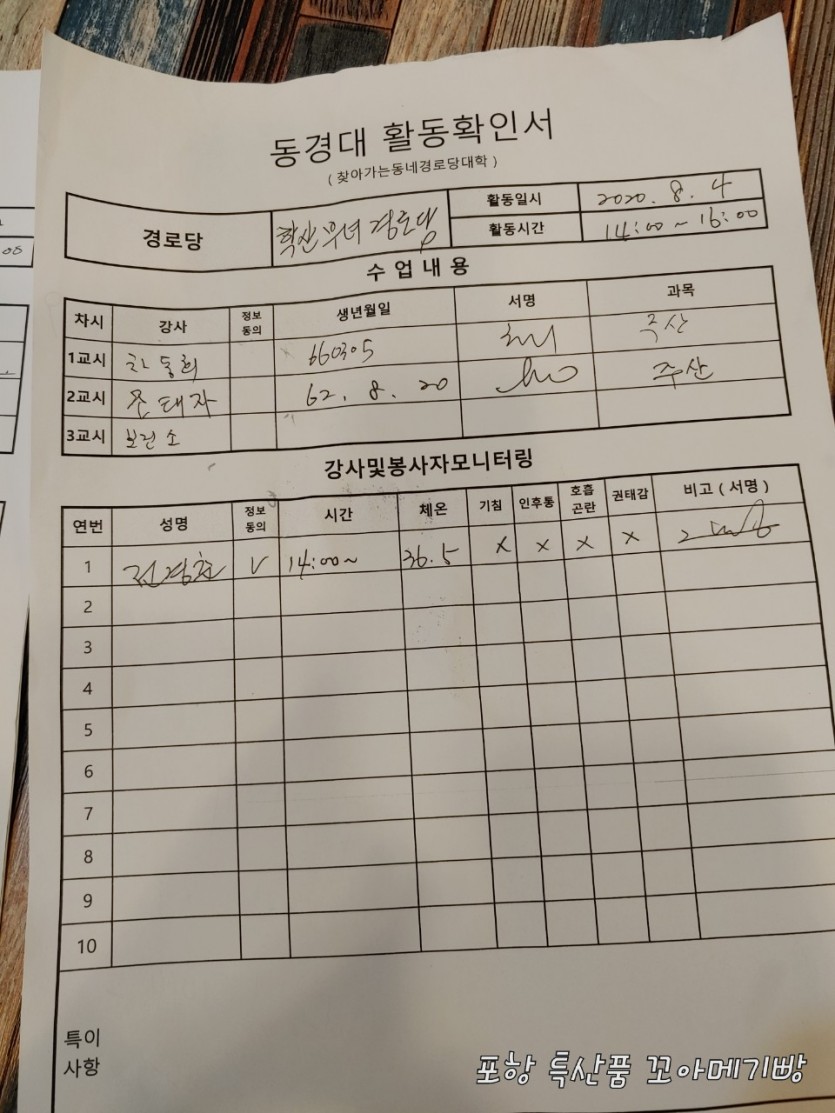 동경대 활동확인서
(찾아가는동네경로당대학)
경로당 학산부녀 경로당 활동일시 2020. 8. 4
활동시간 14:00 ~ 16:00
수 업 내 용
차시 강사 정보동의 생년월일 서명 과목
1교시 차동희 660305 주산
2교시 손태자 62. 8. 20 주산
3교시
강사및봉사자모니터링
연번 성명 정보동의 시간 체온 기침 인후통 호흡곤란 권태감 비고 ( 서명 )
1 V 14:00~ 36.5 X X X X
2
3
4
5
6
7
8
9
10
특이
사항
포항 특산품 꼬아메기빵